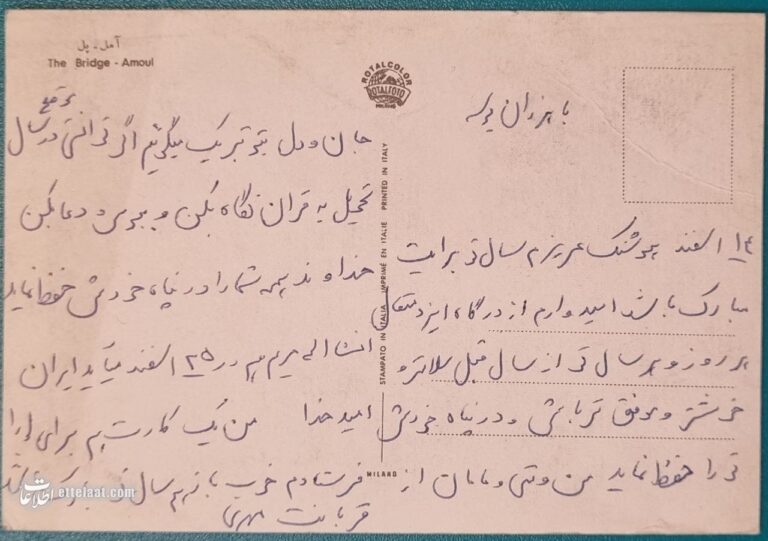 آمل - پل
The Bridge - Amoul
ROTALCOLOR
ROTALFOTO
MILANO
STAMPATO IN ITALIA IMPRIMÉ EN ITALIE PRINTED IN ITALY
MILANO
با هزاران بوسه
۱٤ اسفند هوشنگ عزیزم سال نو برایت
مبارک باشد امیدوارم از درگاه ایزد متعال
هر روز و هر سال تو از سال قبل سلامتر و
خوشتر و موفق تر باشی و در پناه خودش
تو را حفظ نماید من و تقی و مامان از
جان و دل بتو تبریک میگوئیم اگر توانستی در موقع سال
تحویل به قران نگاه بکن و ببوس و دعا بکن
خداوند همه شما را در پناه خودش حفظ نماید
انشااله مریم هم در ۲۵ اسفند میآید ایران
امید خدا من یک کارت هم برای
فرستادم خوب بازهم سال نو مبارک باشد
قربانت مهری
اطلاعات
ettelaat.com